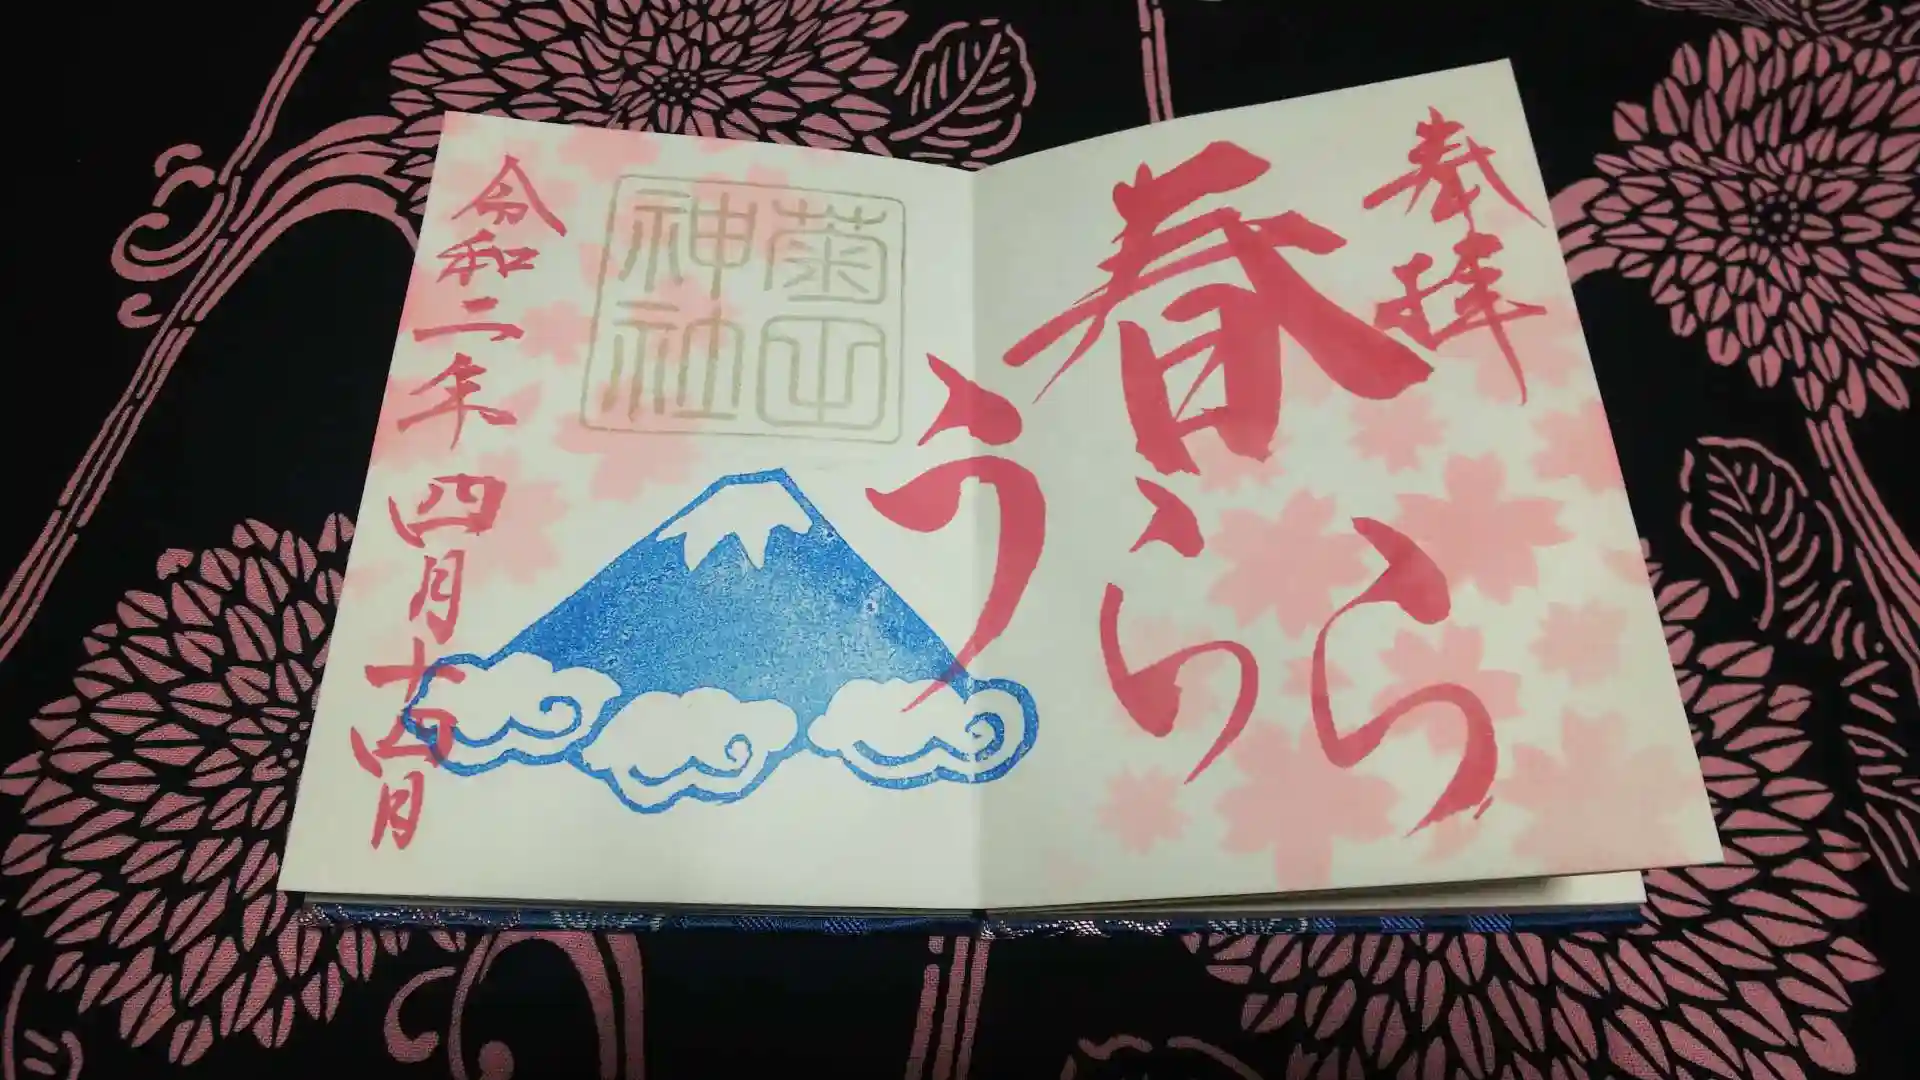 奉拝
春うらら
菊田
神社
令和二年四月十四日